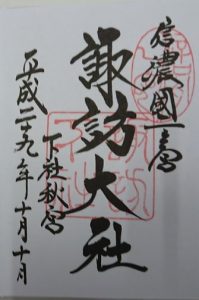 信濃國一之宮
諏訪大社
下社秋宮
平成二十九年十月十月